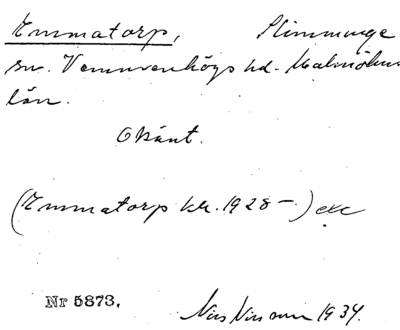 Emmatorp, Slimminge
sn. Vemmenhögs hd. Malmöhus
län.
Okänt.
(Emmatorp kr. 1928 –)
Nr 5873.
Nils Nilsson 1934.